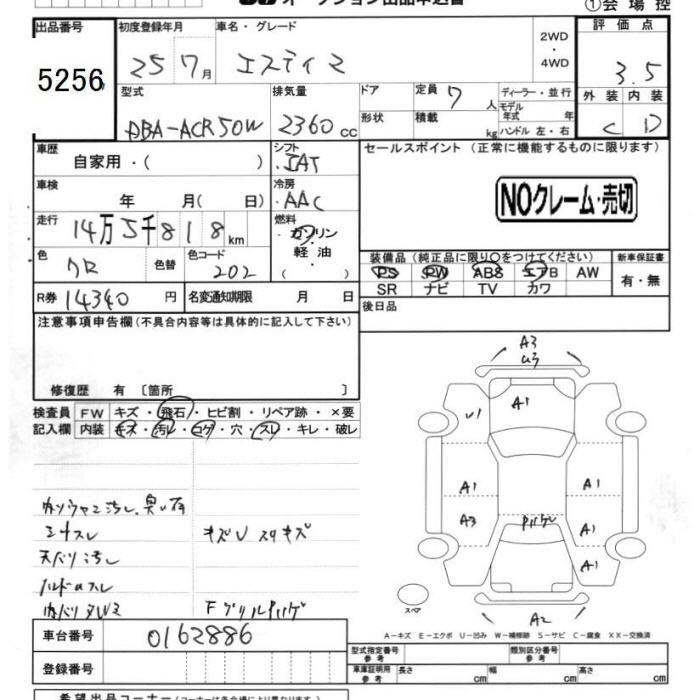 オークション出品申込書
①会場控
出品番号
5256
初度登録年月
25 7月
車名・グレード
エスティマ
2WD
・
4WD
評価点
3.5
外装 内装
C D
型式
DBA-ACR50W
排気量
2360 cc
ドア
形状
定員 7 人
積載 kg
ディーラー・並行
モデル年式 年
ハンドル 左・右
車歴
自家用・( )
シフト
IAT
車検
年 月( 日)
冷房
AAC
走行
14万5千818km
燃料
ガソリン
軽油
・( )
色
色替
色コード
202
R券 14340 円
名変通知期限 月 日
セールスポイント (正常に機能するものに限ります)
NOクレーム・売切
装備品 (純正品に限り○をつけてください)
PS PW ABS エアB AW
SR ナビ TV カワ
新車保証書
有・無
後日品
注意事項申告欄 (不具合内容等は具体的に記入して下さい)
修復歴 有 〔箇所 〕
検査員記入欄
FW キズ・飛石・ヒビ割・リペア跡・×要
内装 キズ・汚レ・コゲ・穴・スレ・キレ・破レ
シートスレ
キズU スリキズ
天バリ汚し
ハンドルスレ
Fグリルハゲ
A3
U3
A1
U1
A1
A3
A1
A1
A1
A2
スペア
A-キズ E-エクボ U-凹み W-補修跡 S-サビ C-腐食 XX-交換済
車台番号
0162886
登録番号
型式指定番号
参考
類別区分番号
参考
車庫証明用
参考
長さ cm 幅 cm 高さ cm
希望出品コーナー (コーナーは各会場により異なります)